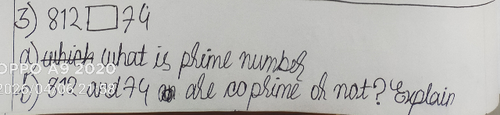 3) 812□74
a) which what is prime number
OPPO A9 2020
b) 812 and 74 are coprime or not? Explain